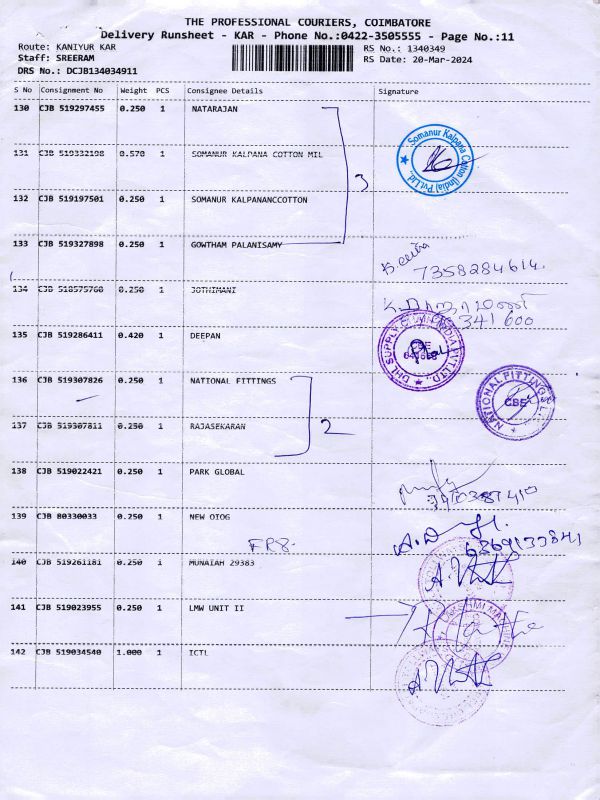 THE PROFESSIONAL COURIERS, COIMBATORE
Delivery Runsheet - KAR - Phone No.:0422-3505555 - Page No.:11
Route: KANIYUR KAR RS No.: 1340349
Staff: SREERAM RS Date: 20-Mar-2024
DRS No.: DCJB134034911
S No Consignment No Weight PCS Consignee Details Signature
130 CJB 519297455 0.250 1 NATARAJAN
Somanur Kalpana Cotton (India) Pvt.Ltd.,
131 CJB 519332198 0.570 1 SOMANUR KALPANA COTTON MIL
3
132 CJB 519197501 0.250 1 SOMANUR KALPANANCCOTTON
133 CJB 519327898 0.250 1 GOWTHAM PALANISAMY
7358284614.
134 CJB 518575760 0.250 1 JOTHIMANI
341 600
135 CJB 519286411 0.420 1 DEEPAN
DHL SUPPLY CHAIN INDIA PVT.LTD.,
136 CJB 519307826 0.250 1 NATIONAL FITTINGS
NATIONAL FITTINGS
CBE
137 CJB 519307811 0.250 1 RAJASEKARAN
2
138 CJB 519022421 0.250 1 PARK GLOBAL
139 CJB 80330033 0.250 1 NEW OIOG
FR8.
140 CJB 519261181 0.250 1 MUNAIAH 29383
141 CJB 519023955 0.250 1 LMW UNIT II
142 CJB 519034540 1.000 1 ICTL